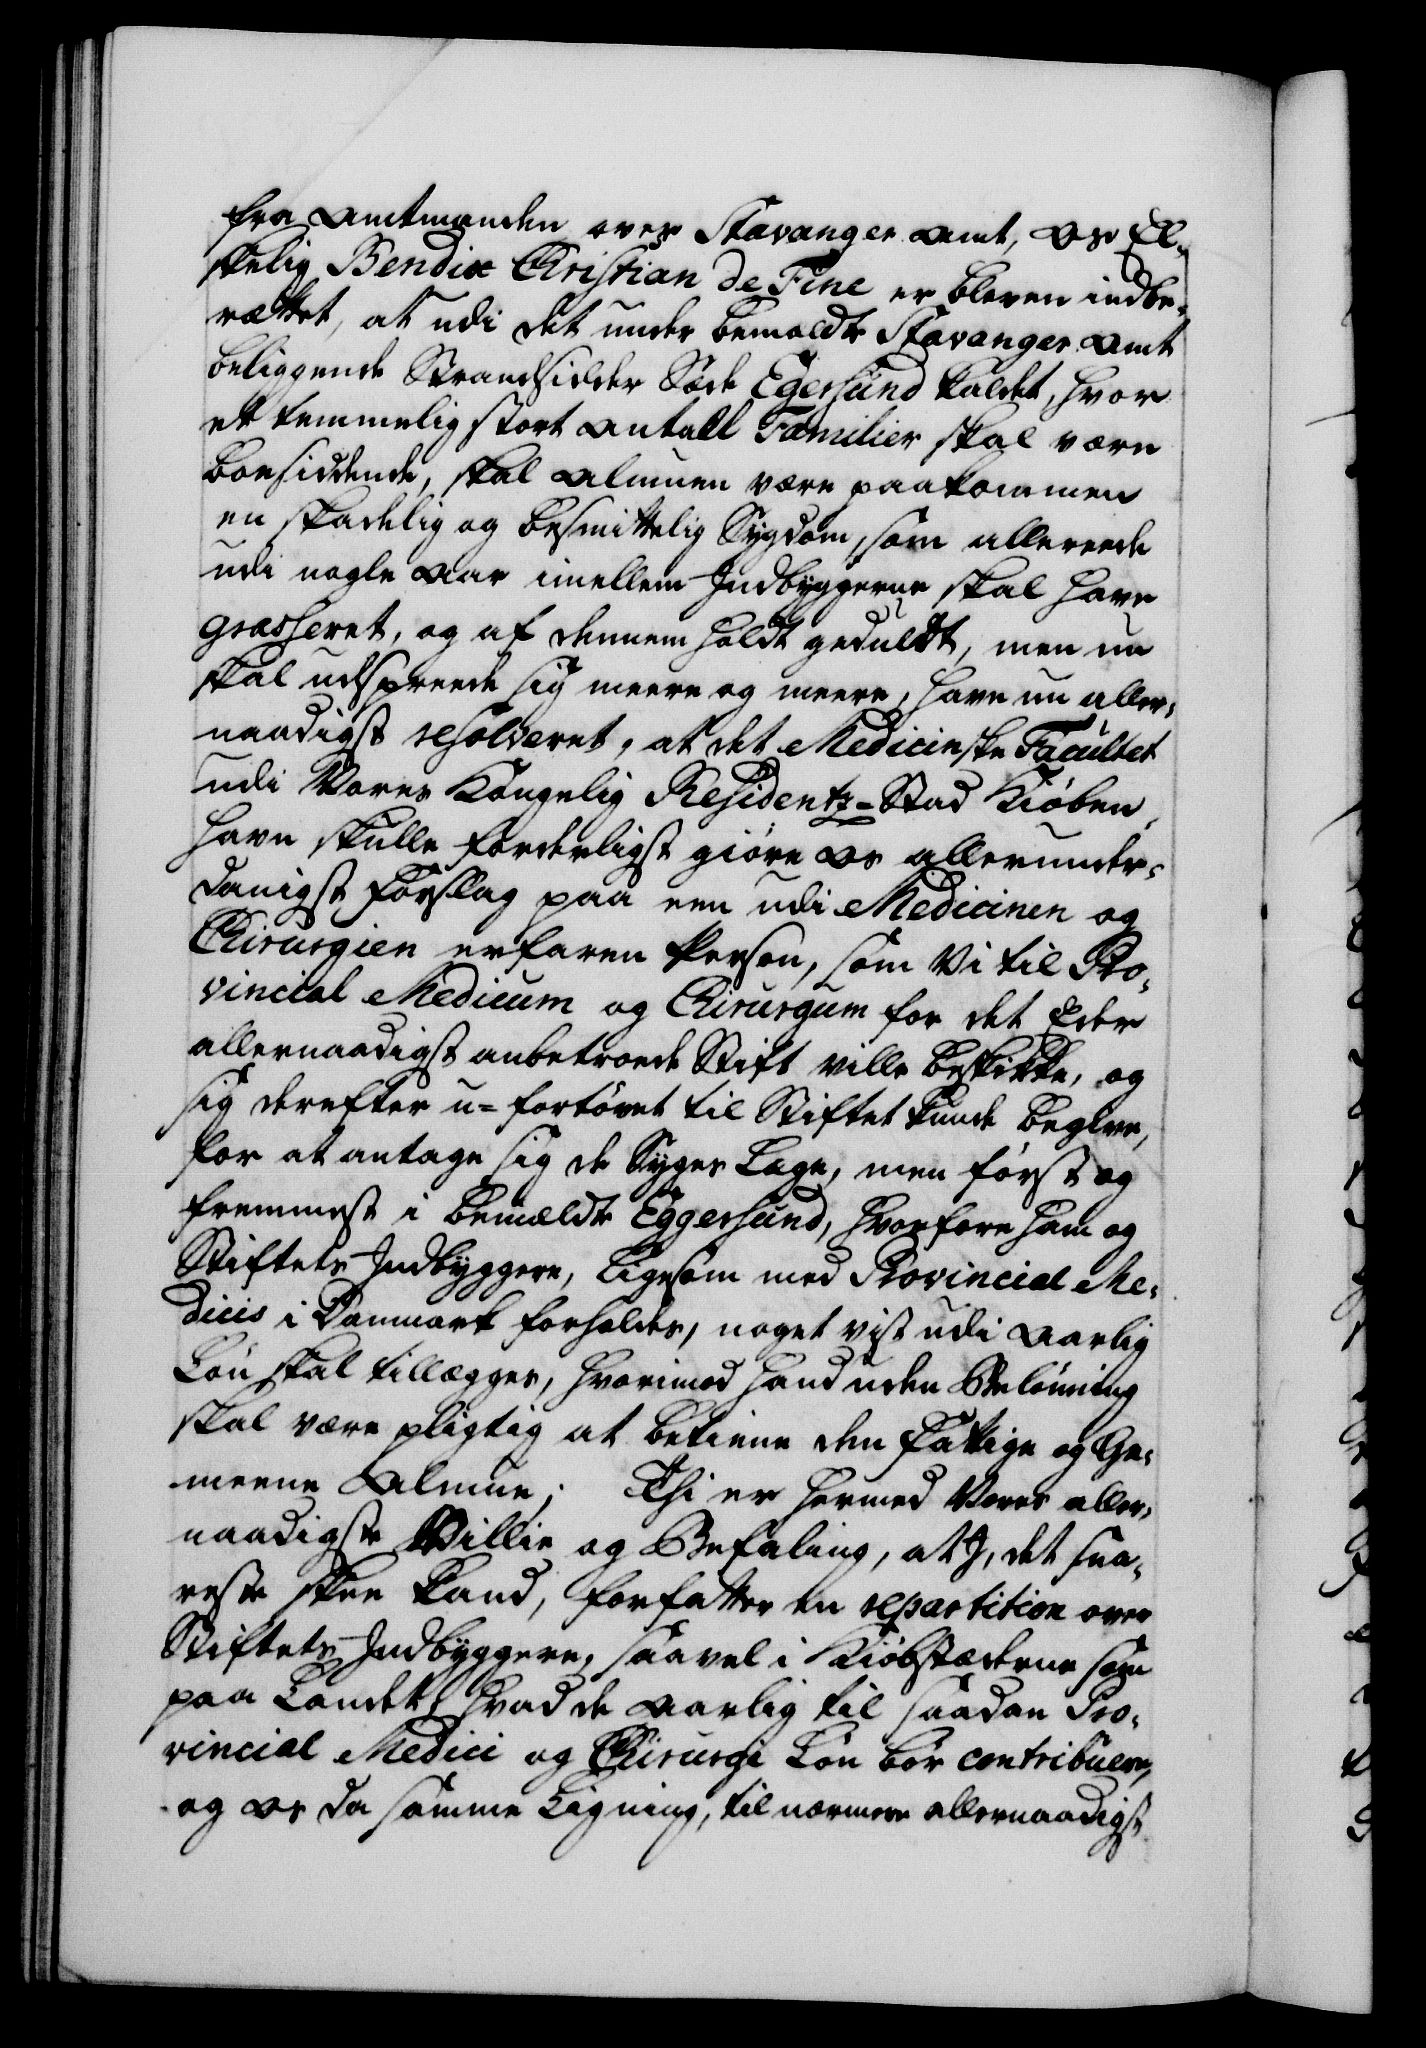 fra Amtmanden over Stavanger Amt, Os El-
skelig Bendix Christian de Fine er bleven indbe-
rættet, at udi det under bemældte Stavanger Amt
beliggende Strandsidder Stæd Egersund kaldet, hvor
et temmelig stort Antall Familier skal være
boesiddende, skal Almuen være paakommen
en skadelig og besmittelig Sygdom, som allereede
udi nogle Aar imellem Indbyggerne skal have
grasseret, og af dennem holdt geduldt, men nu
skal udspreede sig meere og meere, have nu aller-
naadigst resolveret, at det Medicinske Facultet
udi Vores Kongelig Residentz-Stad Kiöben-
havn skulle forderligst giöre Os allerunder-
danigst Forslag paa een udi Medicinen og
Chirurgien erfaren Person, som Vi til Pro-
vincial Medicum og Chirurgum for det Eder
allernaadigst anbetroede Stift ville beskikke, og
sig derefter u-fortövet til Stiftet kunde begive,
for at antage sig de Syges Læge, men först og
fremmest i bemældte Eggersund, hvorfore ham og
Stiftets Indbyggere, ligesom med Provincial Me-
dicis i Danmark forholdes, noget vist udi Aarlig
Lön skal tillægges, hvorimod hand uden Belönning
skal være pligtig at betiene den Fattige og Ge-
meene Almue; Thi er hermed Vores aller-
naadigste Villie og Befaling, at I, det sna-
reste skee kand, forfatter en repartition over
Stiftets Indbyggere, saavel i Kiöbstæderne som
paa Landet, hvad de Aarlig til saadan Pro-
vincial Medici og Chirurgi Lön bör contribuere,
og Os da samme Ligning, til nærmere allernaadigst